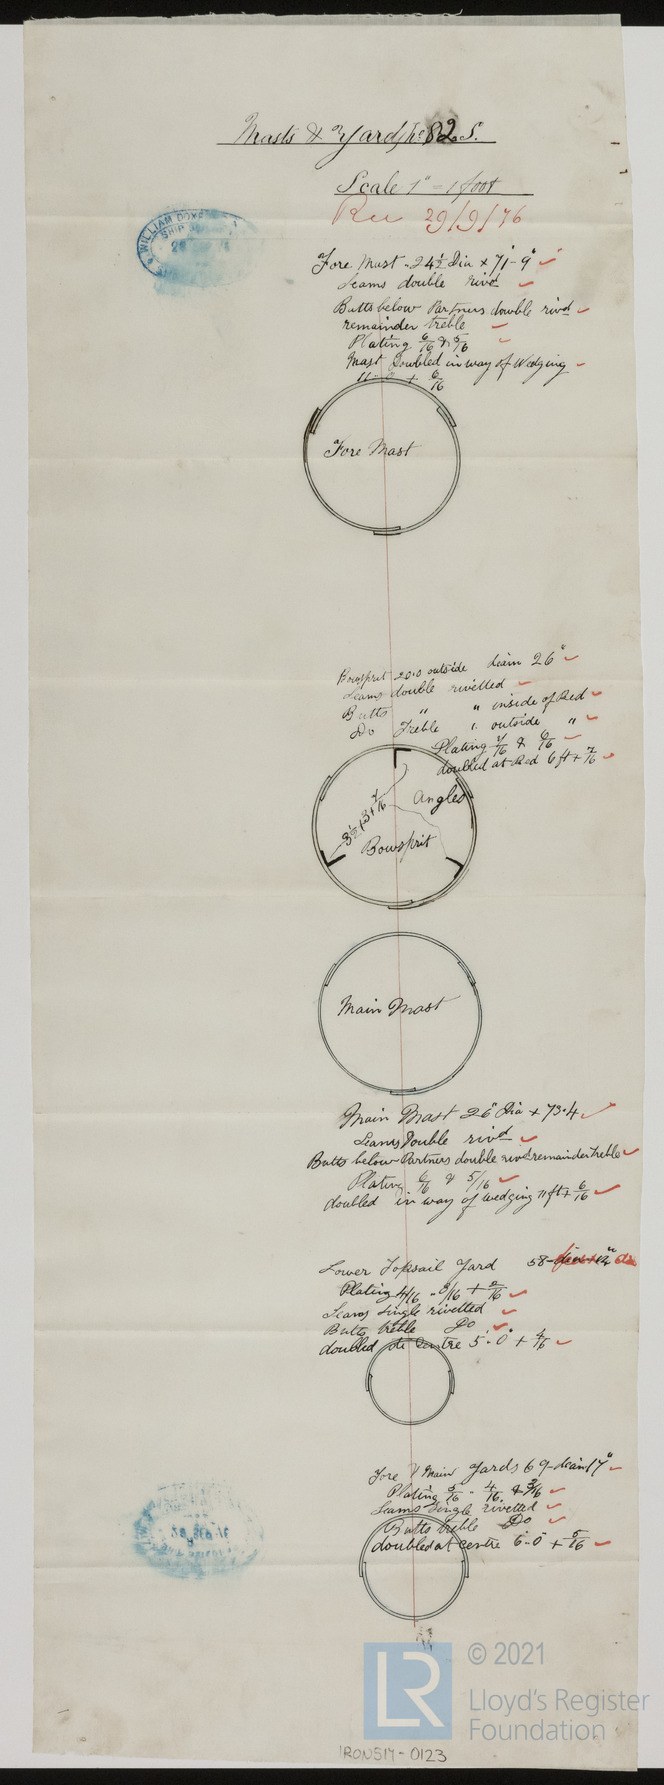 Masts & Yards No 82 S.
Scale 1" = 1 foot
Rec 29/9/76
WILLIAM DOXF
SHIP
Fore Mast - 24½ Dia × 71'-9"
Seams double rivd
Butts below Partners double rivd
remainder treble
Plating 6/16 & 5/16
Mast Doubled in way of Wedging
11-0 + 6/16
Fore Mast
Bowsprit 20.0 outside diam 26"
Seams double rivetted
Butts " " inside of Bed
Do Treble " outside "
Plating 7/16 & 6/16
doubled at Bed 6 ft + 7/16
Angles
3½ + 3 + 7/16
Bowsprit
Main Mast
Main Mast 26" Dia + 73.4
Seams Double rivd
Butts below Partners double rivd remainder treble
Plating 6/16 & 5/16
doubled in way of wedging 11 ft + 6/16
Lower Topsail Yard 58-
Plating 4/16 - 3/16
Seams single rivetted
Butts treble Do
doubled at centre 5'-0" + 4/16
Fore & Main Yards 69-diam 17"
Plating 5/16 - 4/16 & 3/16
Seams Single rivetted
Butts treble Do
doubled at centre 6-0" + 5/16
LR
© 2021
Lloyd's Register
Foundation
IRON514-0123